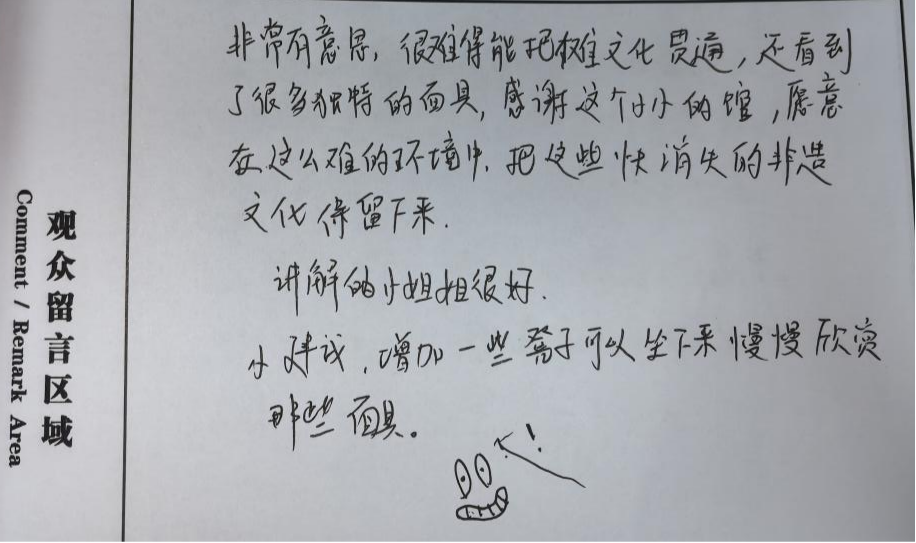 观众留言区域
Comment / Remark Area
非常有意思，很难得能把傩文化贯通，还看到
了很多独特的面具，感谢这个小小的馆，愿意
在这么难的环境中，把这些快消失的非遗
文化保留下来．
讲解的小姐姐很好．
小建议，增加一些凳子可以坐下来慢慢欣赏
那些面具。
！